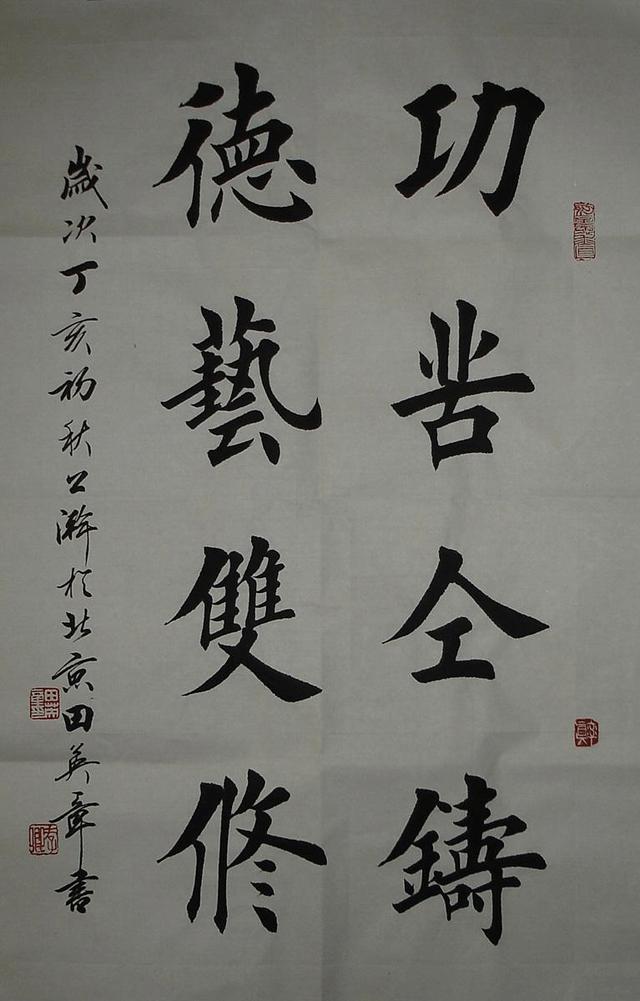 功苦仝鑄
德藝雙修
歲次丁亥初秋於北京田英章書